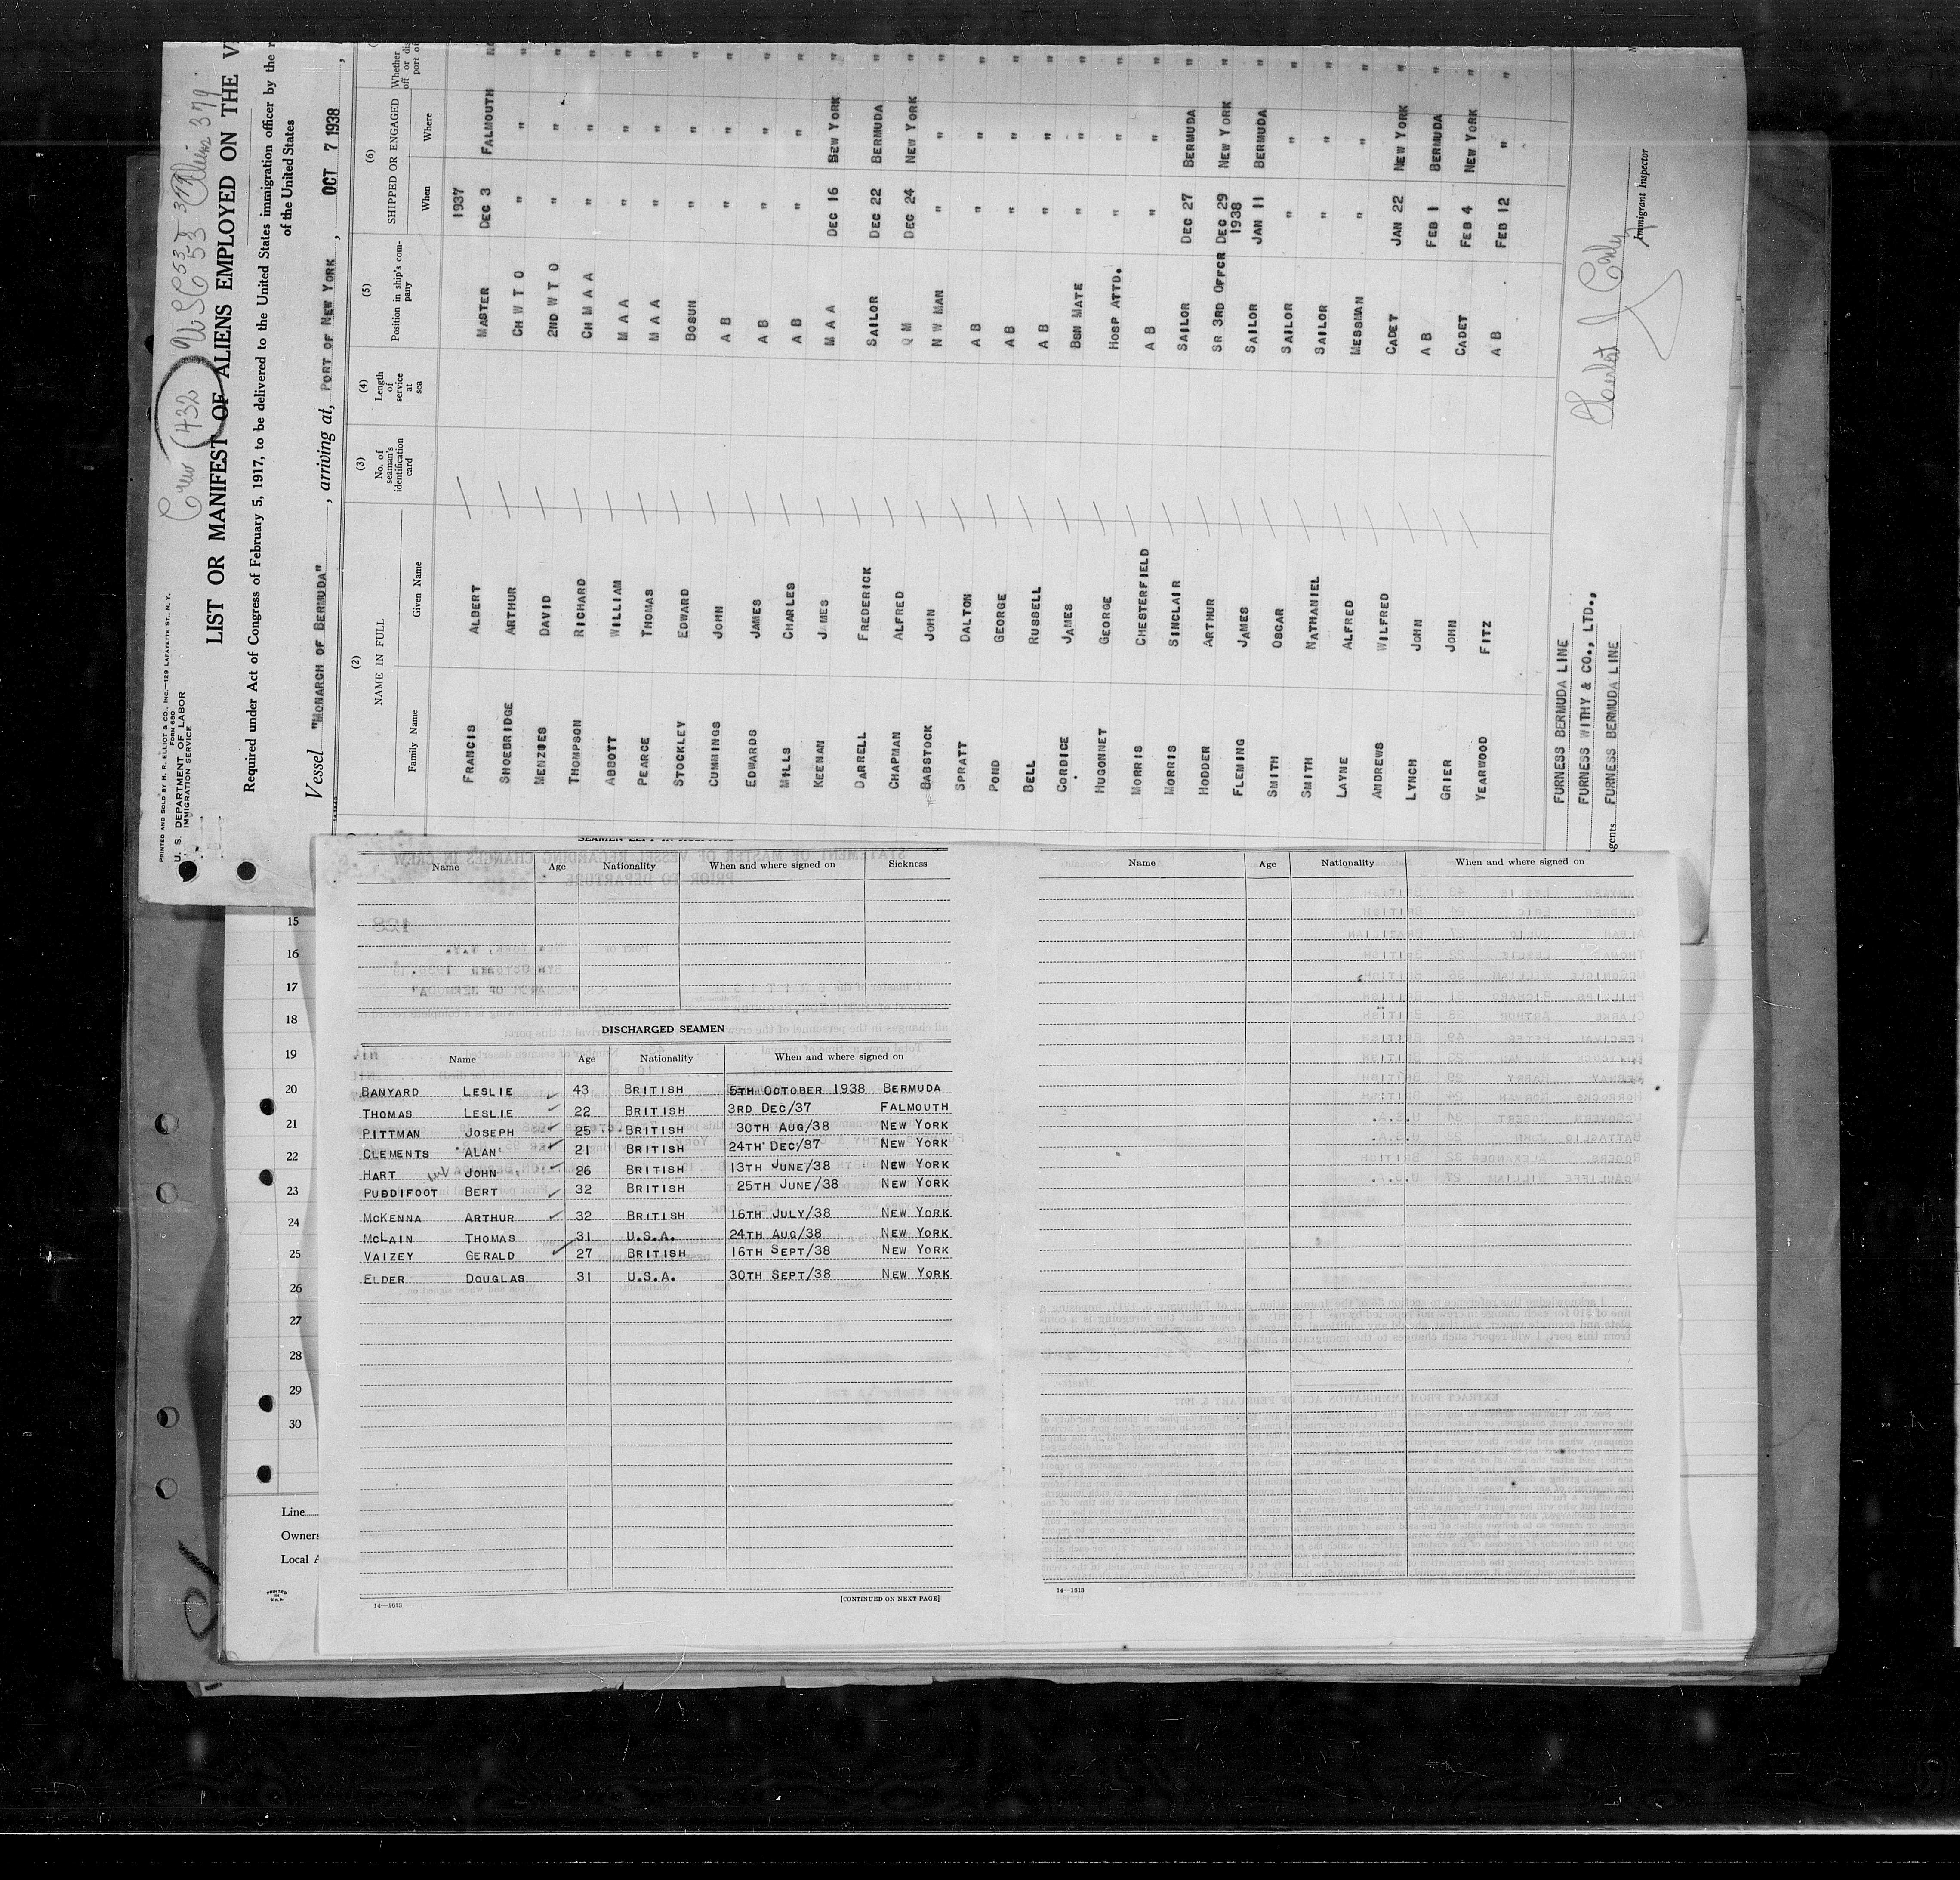 PRINTED AND SOLD BY H. R. ELLIOT & CO., INC.—129 LAFAYETTE ST., N. Y.
FORM 680
U. S. DEPARTMENT OF LABOR
IMMIGRATION SERVICE
Crew 432
LIST OR MANIFEST OF ALIENS EMPLOYED ON THE V
Required under Act of Congress of February 5, 1917, to be delivered to the United States immigration officer by the r
of the United States
Vessel "MONARCH OF BERMUDA", arriving at, PORT OF NEW YORK, OCT 7 1938,
(2) (3) (4) (5) (6)
NAME IN FULL No. of seaman's identification card Length of service at sea Position in ship's company SHIPPED OR ENGAGED
Family Name Given Name When Where
1937
FRANCIS ALBERT MASTER DEC 3 FALMOUTH NO
SHOEBRIDGE ARTHUR CH W T O " " "
MENZIES DAVID 2ND W T O " " "
THOMPSON RICHARD CH M A A " " "
ABBOTT WILLIAM M A A " " "
PEARCE THOMAS M A A " " "
STOCKLEY EDWARD BOSUN " " "
CUMMINGS JOHN A B " " "
EDWARDS JAMES A B " " "
MILLS CHARLES A B " " "
KEENAN JAMES M A A DEC 16 BEW YORK "
DARRELL FREDERICK SAILOR DEC 22 BERMUDA "
CHAPMAN ALFRED Q M DEC 24 NEW YORK "
BABSTOCK JOHN N W MAN " " "
SPRATT DALTON A B " " "
POND GEORGE A B " " "
BELL RUSSELL A B " " "
CORDICE JAMES BSN MATE " " "
HUGONNET GEORGE HOSP ATTD. " " "
MORRIS CHESTERFIELD A B " " "
MORRIS SINCLAIR SAILOR DEC 27 BERMUDA "
HODDER ARTHUR SR 3RD OFFCR DEC 29 NEW YORK "
1938
FLEMING JAMES SAILOR JAN 11 BERMUDA "
SMITH OSCAR SAILOR " " "
SMITH NATHANIEL SAILOR " " "
LAYNE ALFRED MESSMAN " " "
ANDREWS WILFRED CADET JAN 22 NEW YORK "
LYNCH JOHN A B FEB 1 BERMUDA "
GRIER JOHN CADET FEB 4 NEW YORK "
YEARWOOD FITZ A B FEB 12 " "
FURNESS BERMUDA LINE
FURNESS WITHY & CO., LTD.,
gents FURNESS BERMUDA LINE
Immigrant Inspector
Name Age Nationality When and where signed on Sickness
DISCHARGED SEAMEN
Name Age Nationality When and where signed on
BANYARD LESLIE 43 BRITISH 5TH OCTOBER 1938 BERMUDA
THOMAS LESLIE 22 BRITISH 3RD DEC/37 FALMOUTH
PITTMAN JOSEPH 25 BRITISH 30TH AUG/38 NEW YORK
CLEMENTS ALAN 21 BRITISH 24TH DEC/37 NEW YORK
HART JOHN 26 BRITISH 13TH JUNE/38 NEW YORK
PUDDIFOOT BERT 32 BRITISH 25TH JUNE/38 NEW YORK
MCKENNA ARTHUR 32 BRITISH 16TH JULY/38 NEW YORK
MCLAIN THOMAS 31 U.S.A. 24TH AUG/38 NEW YORK
VAIZEY GERALD 27 BRITISH 16TH SEPT/38 NEW YORK
ELDER DOUGLAS 31 U.S.A. 30TH SEPT/38 NEW YORK
14—1613
[CONTINUED ON NEXT PAGE]
Name Age Nationality When and where signed on
14—1613
15
16
17
18
19
20
21
22
23
24
25
26
27
28
29
30
Line
Owners
Local A
PRINTED
IN
U.S.A.